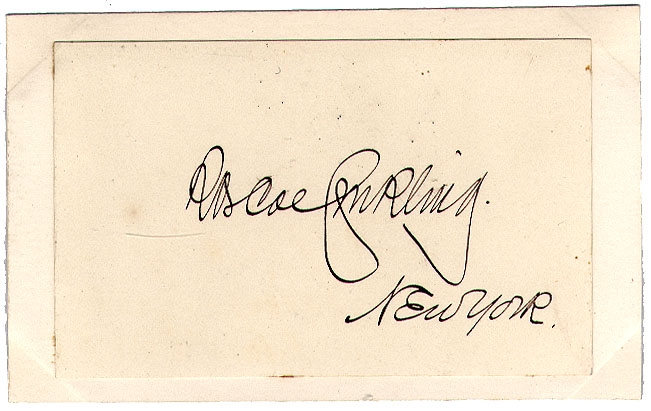 Roscoe Conkling.
New York.